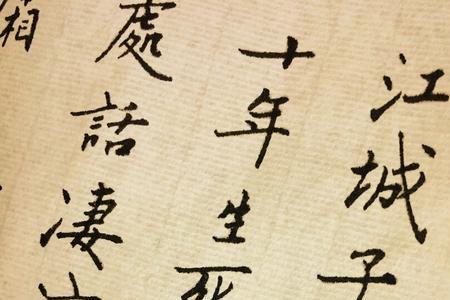 江城子
十年生死
處話凄